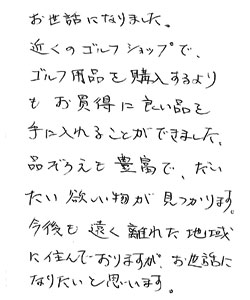 お世話になりました。
近くのゴルフショップで、
ゴルフ用品を購入するより
もお買得に良い品を
手に入れることができました。
品ぞろえも豊富で、だい
たい欲しい物が見つかります。
今後も遠く離れた地域
に住んでおりますが、お世話に
なりたいと思います。